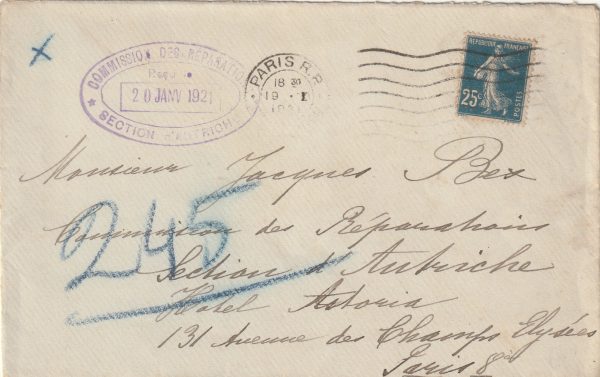 COMMISSION DES RÉPARATIONS
Reçu le
20 JANV 1921
SECTION D'AUTRICHE
PARIS R.P.
18 30
19 - I
RÉPUBLIQUE FRANÇAISE
25c
POSTES
Monsieur Jacques Bex
Commission des Réparations
245
Section d'Autriche
Hotel Astoria
131 Avenue des Champs Elysées
Paris 8e